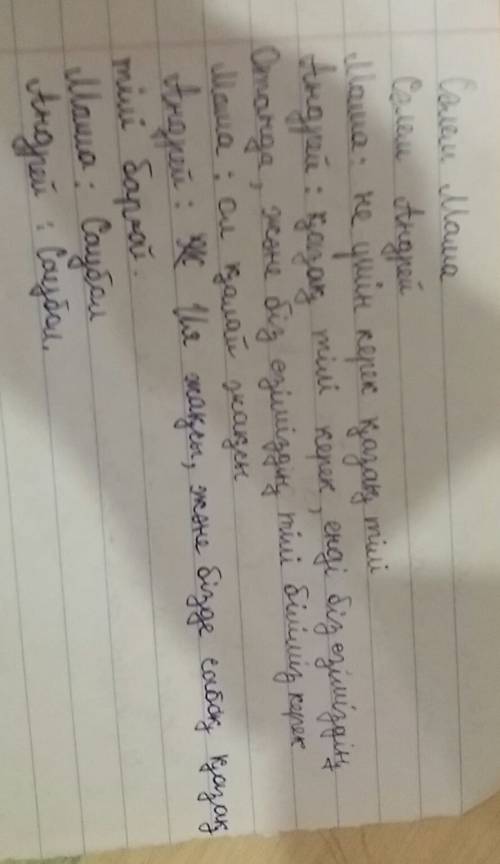 Сәлем Маша
Сәлем Андрей
Маша: не үшін керек қазақ тілі
Андрей: қазақ тілі керек, енді біз өзіміздің
Отанда, және біз өзіміздің тілі білміз керек
Маша: ол қалай жақсы
Андрей: Ия жақсы, және бізде сабақ қазақ
тілі барғой.
Маша: Саубол
Андрей: Саубол.